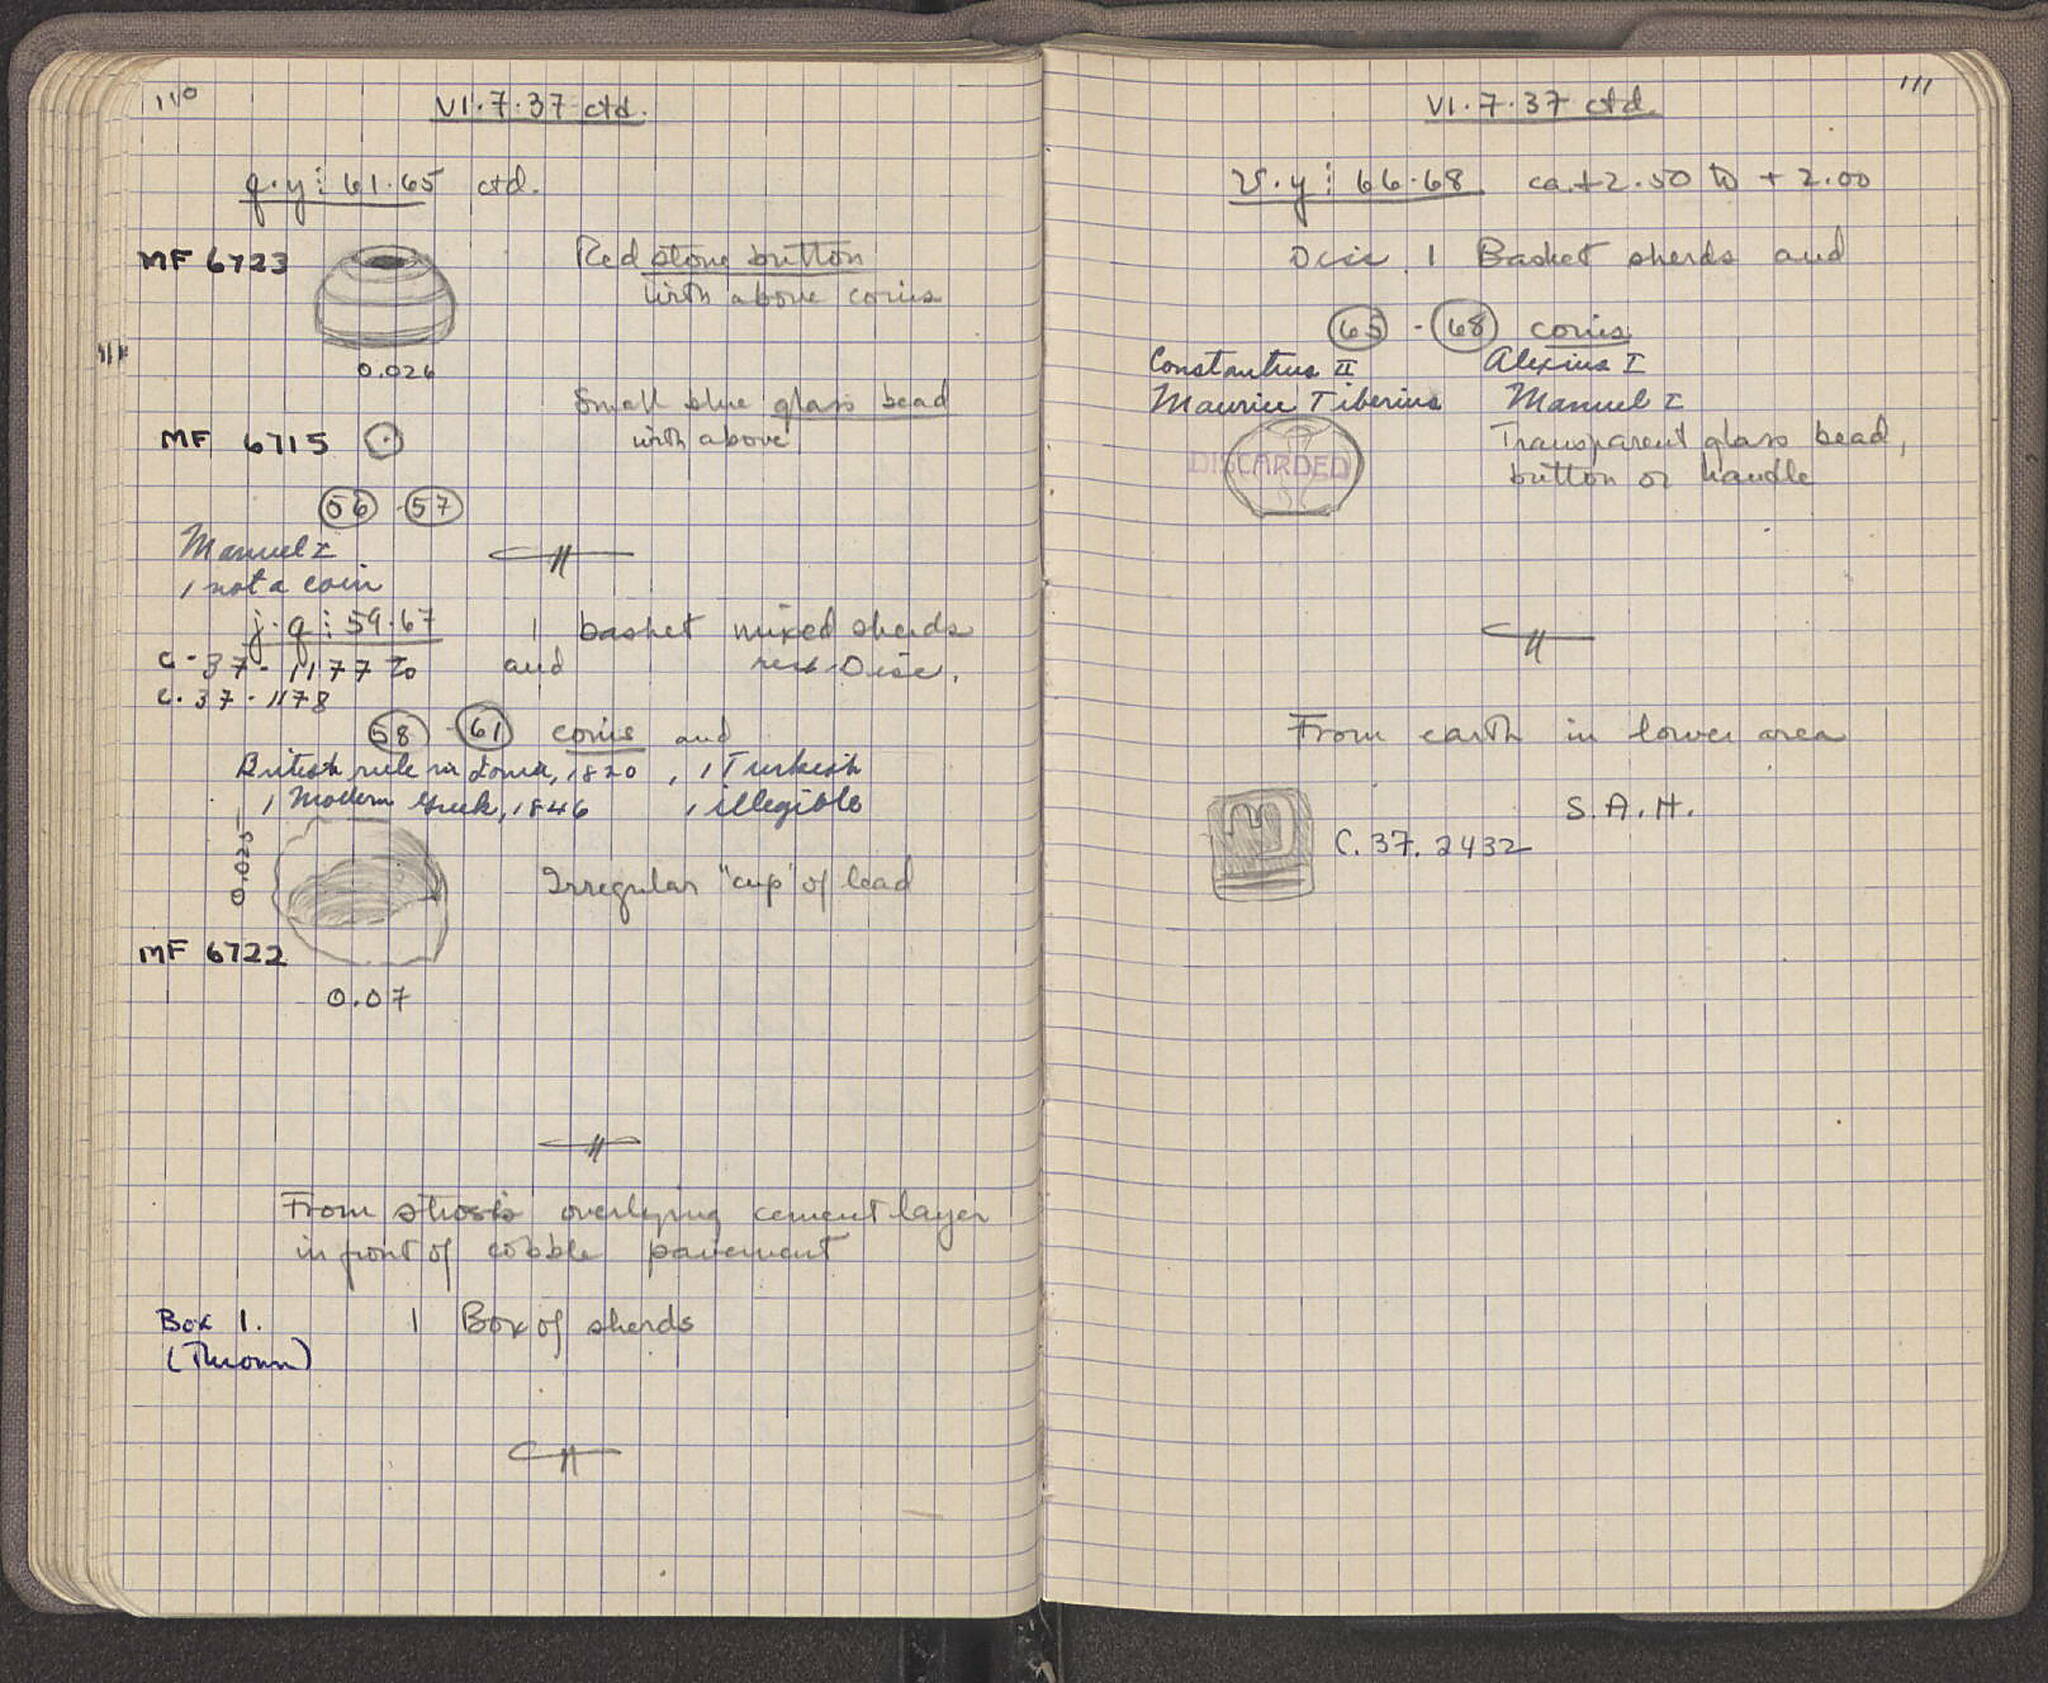 110
VI.7.37 ctd.
q.y : 61.65 ctd.
MF 6723
Red stone button
with above coins
0.026
Small blue glass bead
with above
MF 6715
56 - 57
Manuel I
1 not a coin
j.q : 59.67
1 basket mixed sherds
C-37-1177 to
and rest Disc.
C.37-1178
58 - 61 coins and
British rule in Ionia, 1820, 1 Turkish
1 Modern Greek, 1846 1 illegible
0.025
Irregular "cup" of lead
MF 6722
0.07
From strosis overlying cement layer
in front of cobble pavement
Box 1. 1 Box of sherds
(Thrown)
111
VI.7.37 ctd.
v.y : 66.68 ca. +2.50 to +2.00
Disc. 1 Basket sherds and
65 - 68 coins
Constantius II Alexius I
Maurice Tiberius Manuel I
Transparent glass bead,
DISCARDED
button or handle
From earth in lower area
S.A.H.
C.37.2432